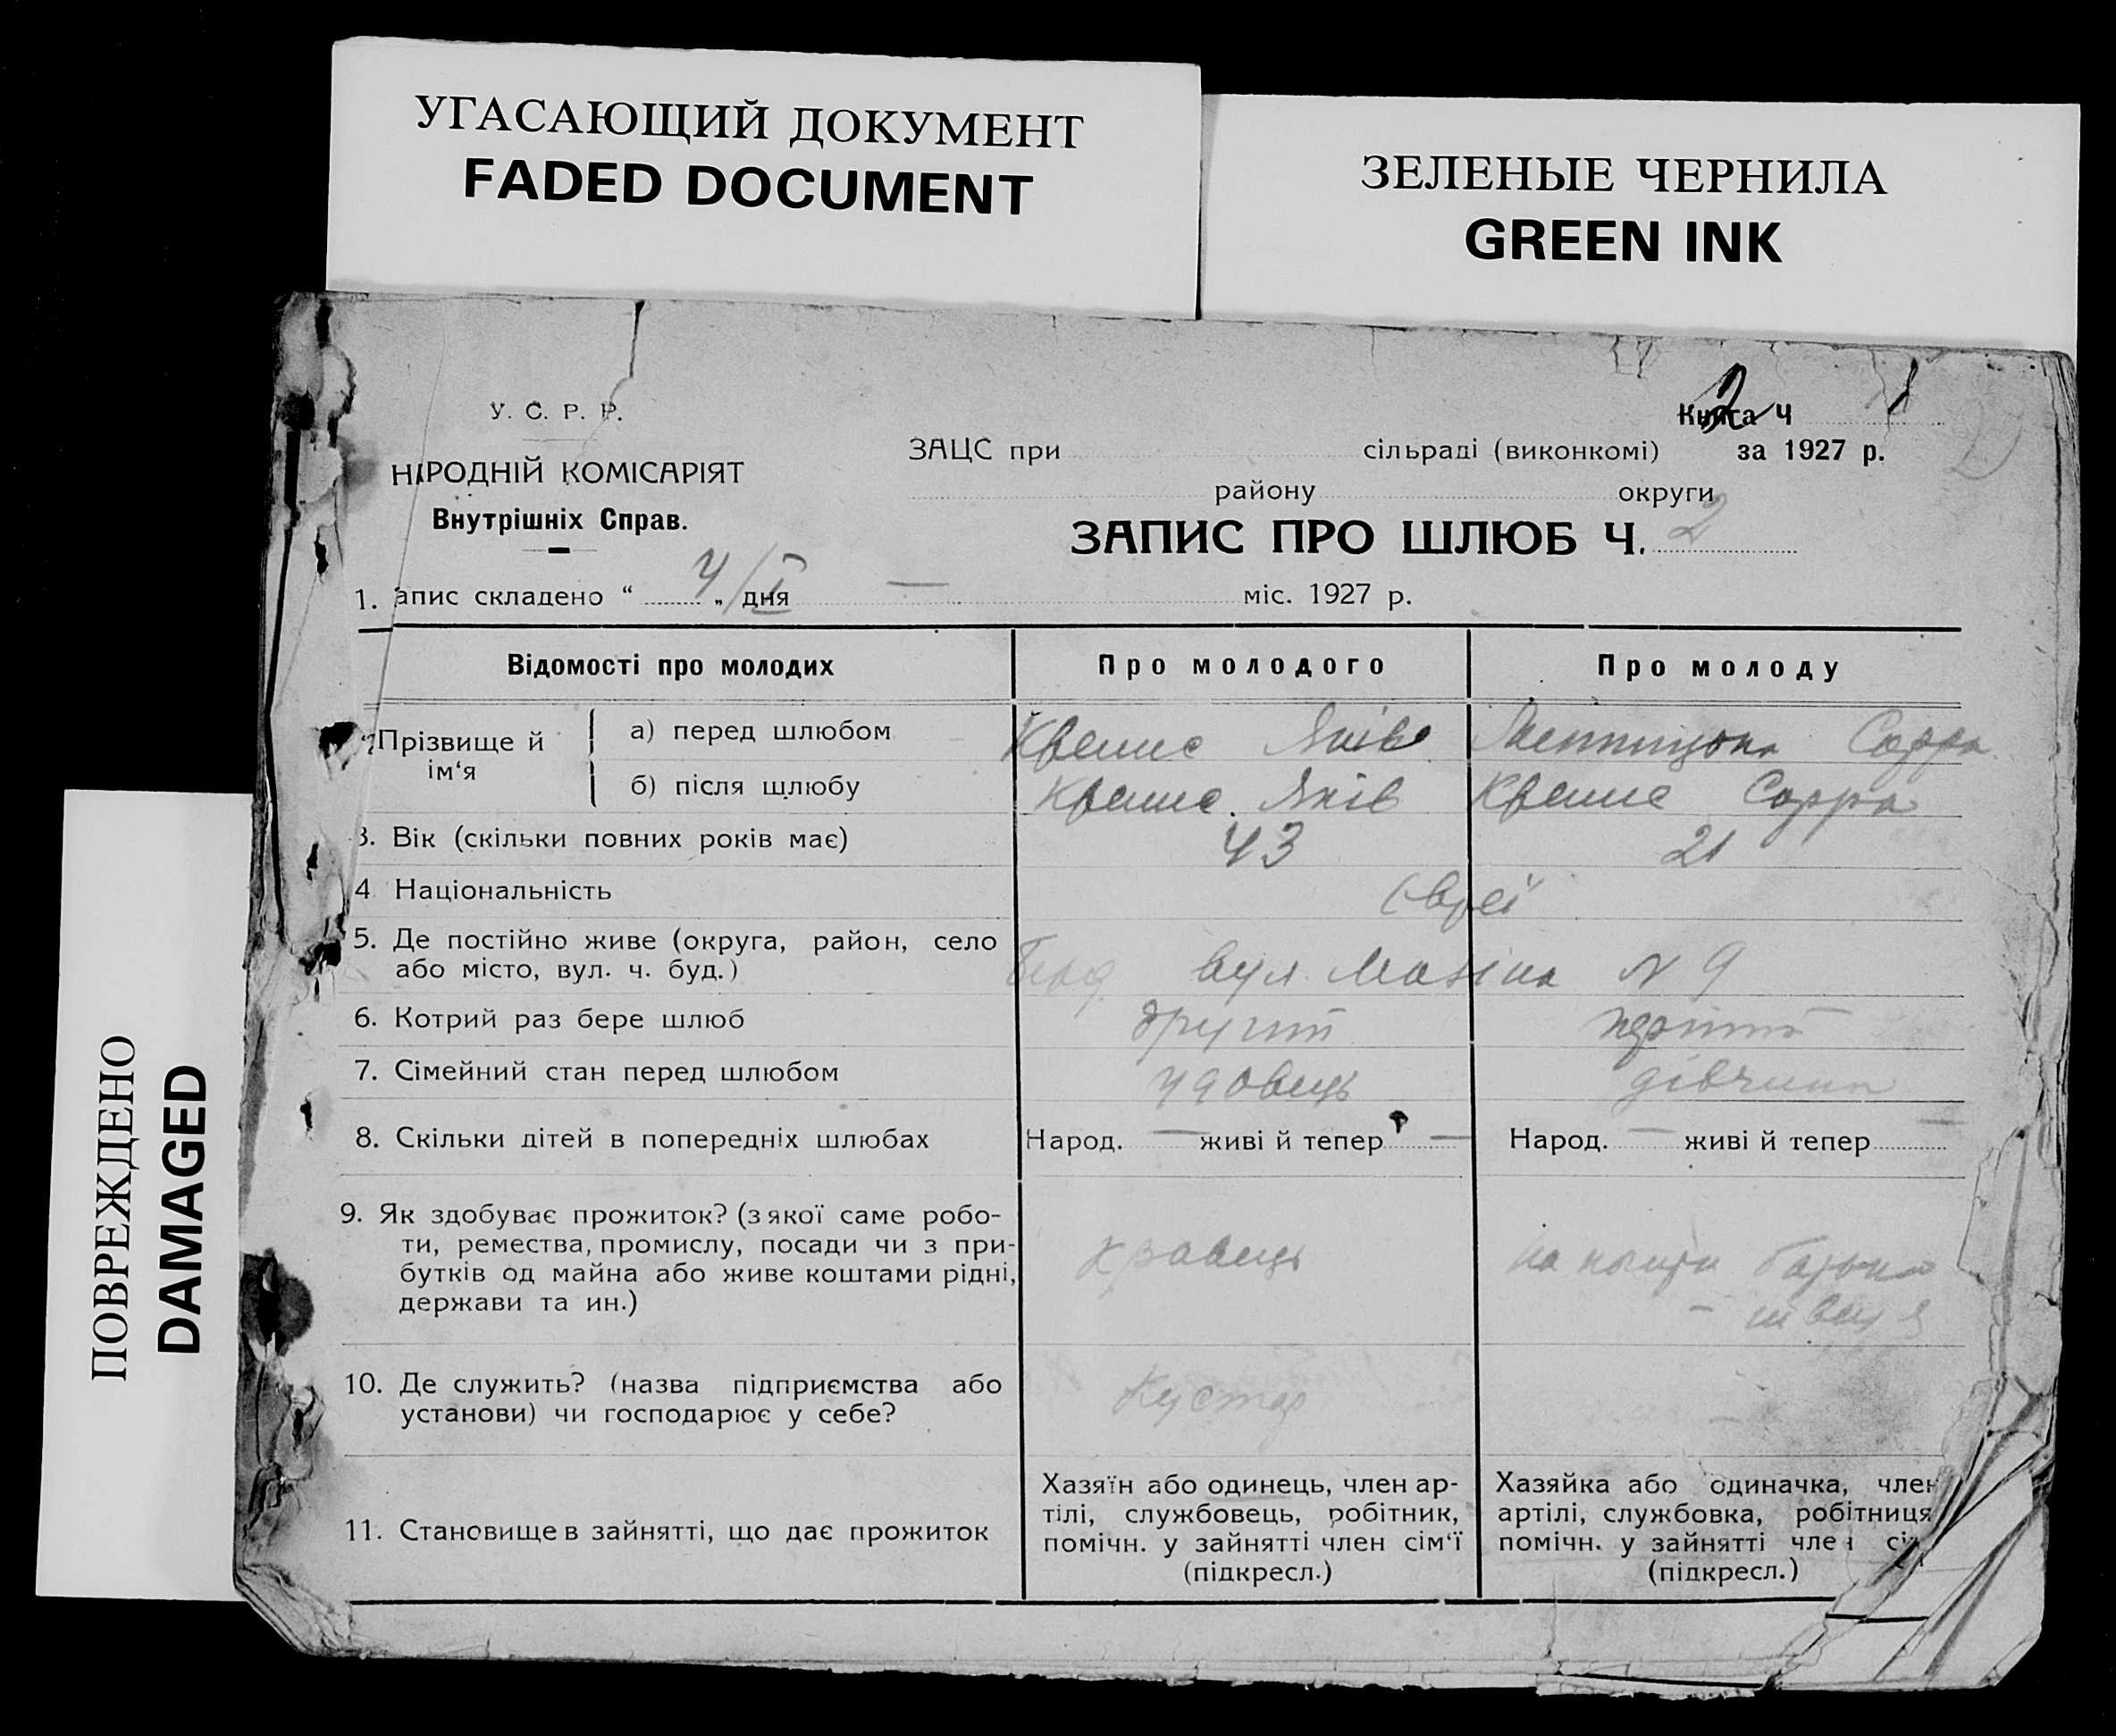 УГАСАЮЩИЙ ДОКУМЕНТ
FADED DOCUMENT
ЗЕЛЕНЫЕ ЧЕРНИЛА
GREEN INK
ПОВРЕЖДЕНО
DAMAGED
У. С. Р. Р.
НАРОДНІЙ КОМІСАРІЯТ
Внутрішніх Справ.
Книга Ч 2
ЗАЦС при сільраді (виконкомі) за 1927 р.
району округи
ЗАПИС ПРО ШЛЮБ Ч. 2
1. апис складено “ 4/I „ дня — міс. 1927 р.
Відомості про молодих Про молодого Про молоду
Прізвище й ім‘я
а) перед шлюбом Яків Сарра
б) після шлюбу Яків Сарра
3. Вік (скільки повних років має) 43 21
4 Національність євреї
5. Де постійно живе (округа, район, село
або місто, вул. ч. буд.) вул. N 9
6. Котрий раз бере шлюб другий перший
7. Сімейний стан перед шлюбом удовець дівчина
8. Скільки дітей в попередніх шлюбах Народ. — живі й тепер — Народ. — живі й тепер —
9. Як здобуває прожиток? (з якої саме робо-
ти, ремества, промислу, посади чи з при-
бутків од майна або живе коштами рідні,
держави та ин.)
кравець
на кошти батька
– швеця
10. Де служить? (назва підприємства або
установи) чи господарює у себе?
Кустар
11. Становище в зайнятті, що дає прожиток
Хазяїн або одинець, член ар-
тілі, службовець, робітник,
помічн. у зайнятті член сім‘ї
(підкресл.)
Хазяйка або одиначка, член
артілі, службовка, робітниця
помічн. у зайнятті член сі
(підкресл.)